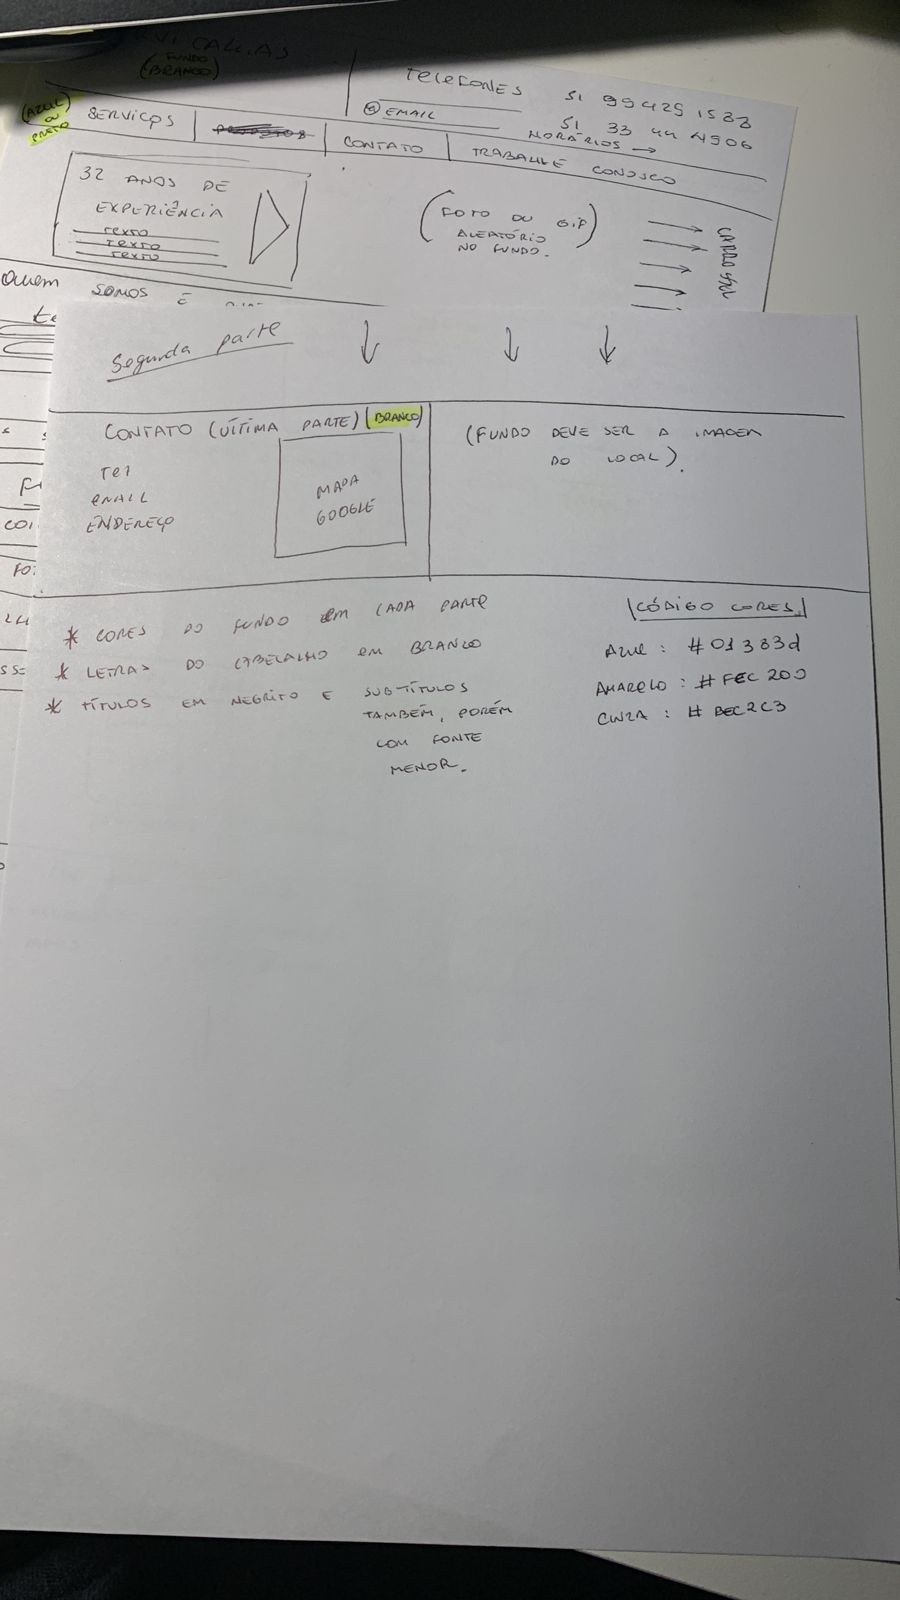 CALHAS
(FUNDO
BRANCO)
TELEFONES 51 99429 1533
@ EMAIL 51 33 44 4906
HORÁRIOS →
(AZUL
OU
PRETO)
SERVIÇOS
CONTATO
TRABALHE CONOSCO
32 ANOS DE
EXPERIÊNCIA
TEXTO
TEXTO
TEXTO
(FOTO OU GIF
ALEATÓRIO
NO FUNDO.)
CARROSSEL
Quem SOMOS E
te
Segunda parte
CONTATO (ÚLTIMA PARTE) (BRANCO)
(FUNDO DEVE SER A IMAGEM
DO LOCAL).
Tel
EMAIL
ENDEREÇO
MAPA
GOOGLE
* CORES DO FUNDO EM CADA PARTE
* LETRAS DO CABEÇALHO EM BRANCO
* TÍTULOS EM NEGRITO E SUBTÍTULOS
TAMBÉM, PORÉM
COM FONTE
MENOR.
CÓDIGO CORES
AZUL : #01383d
AMARELO : #FEC200
CINZA : # BEC2C3